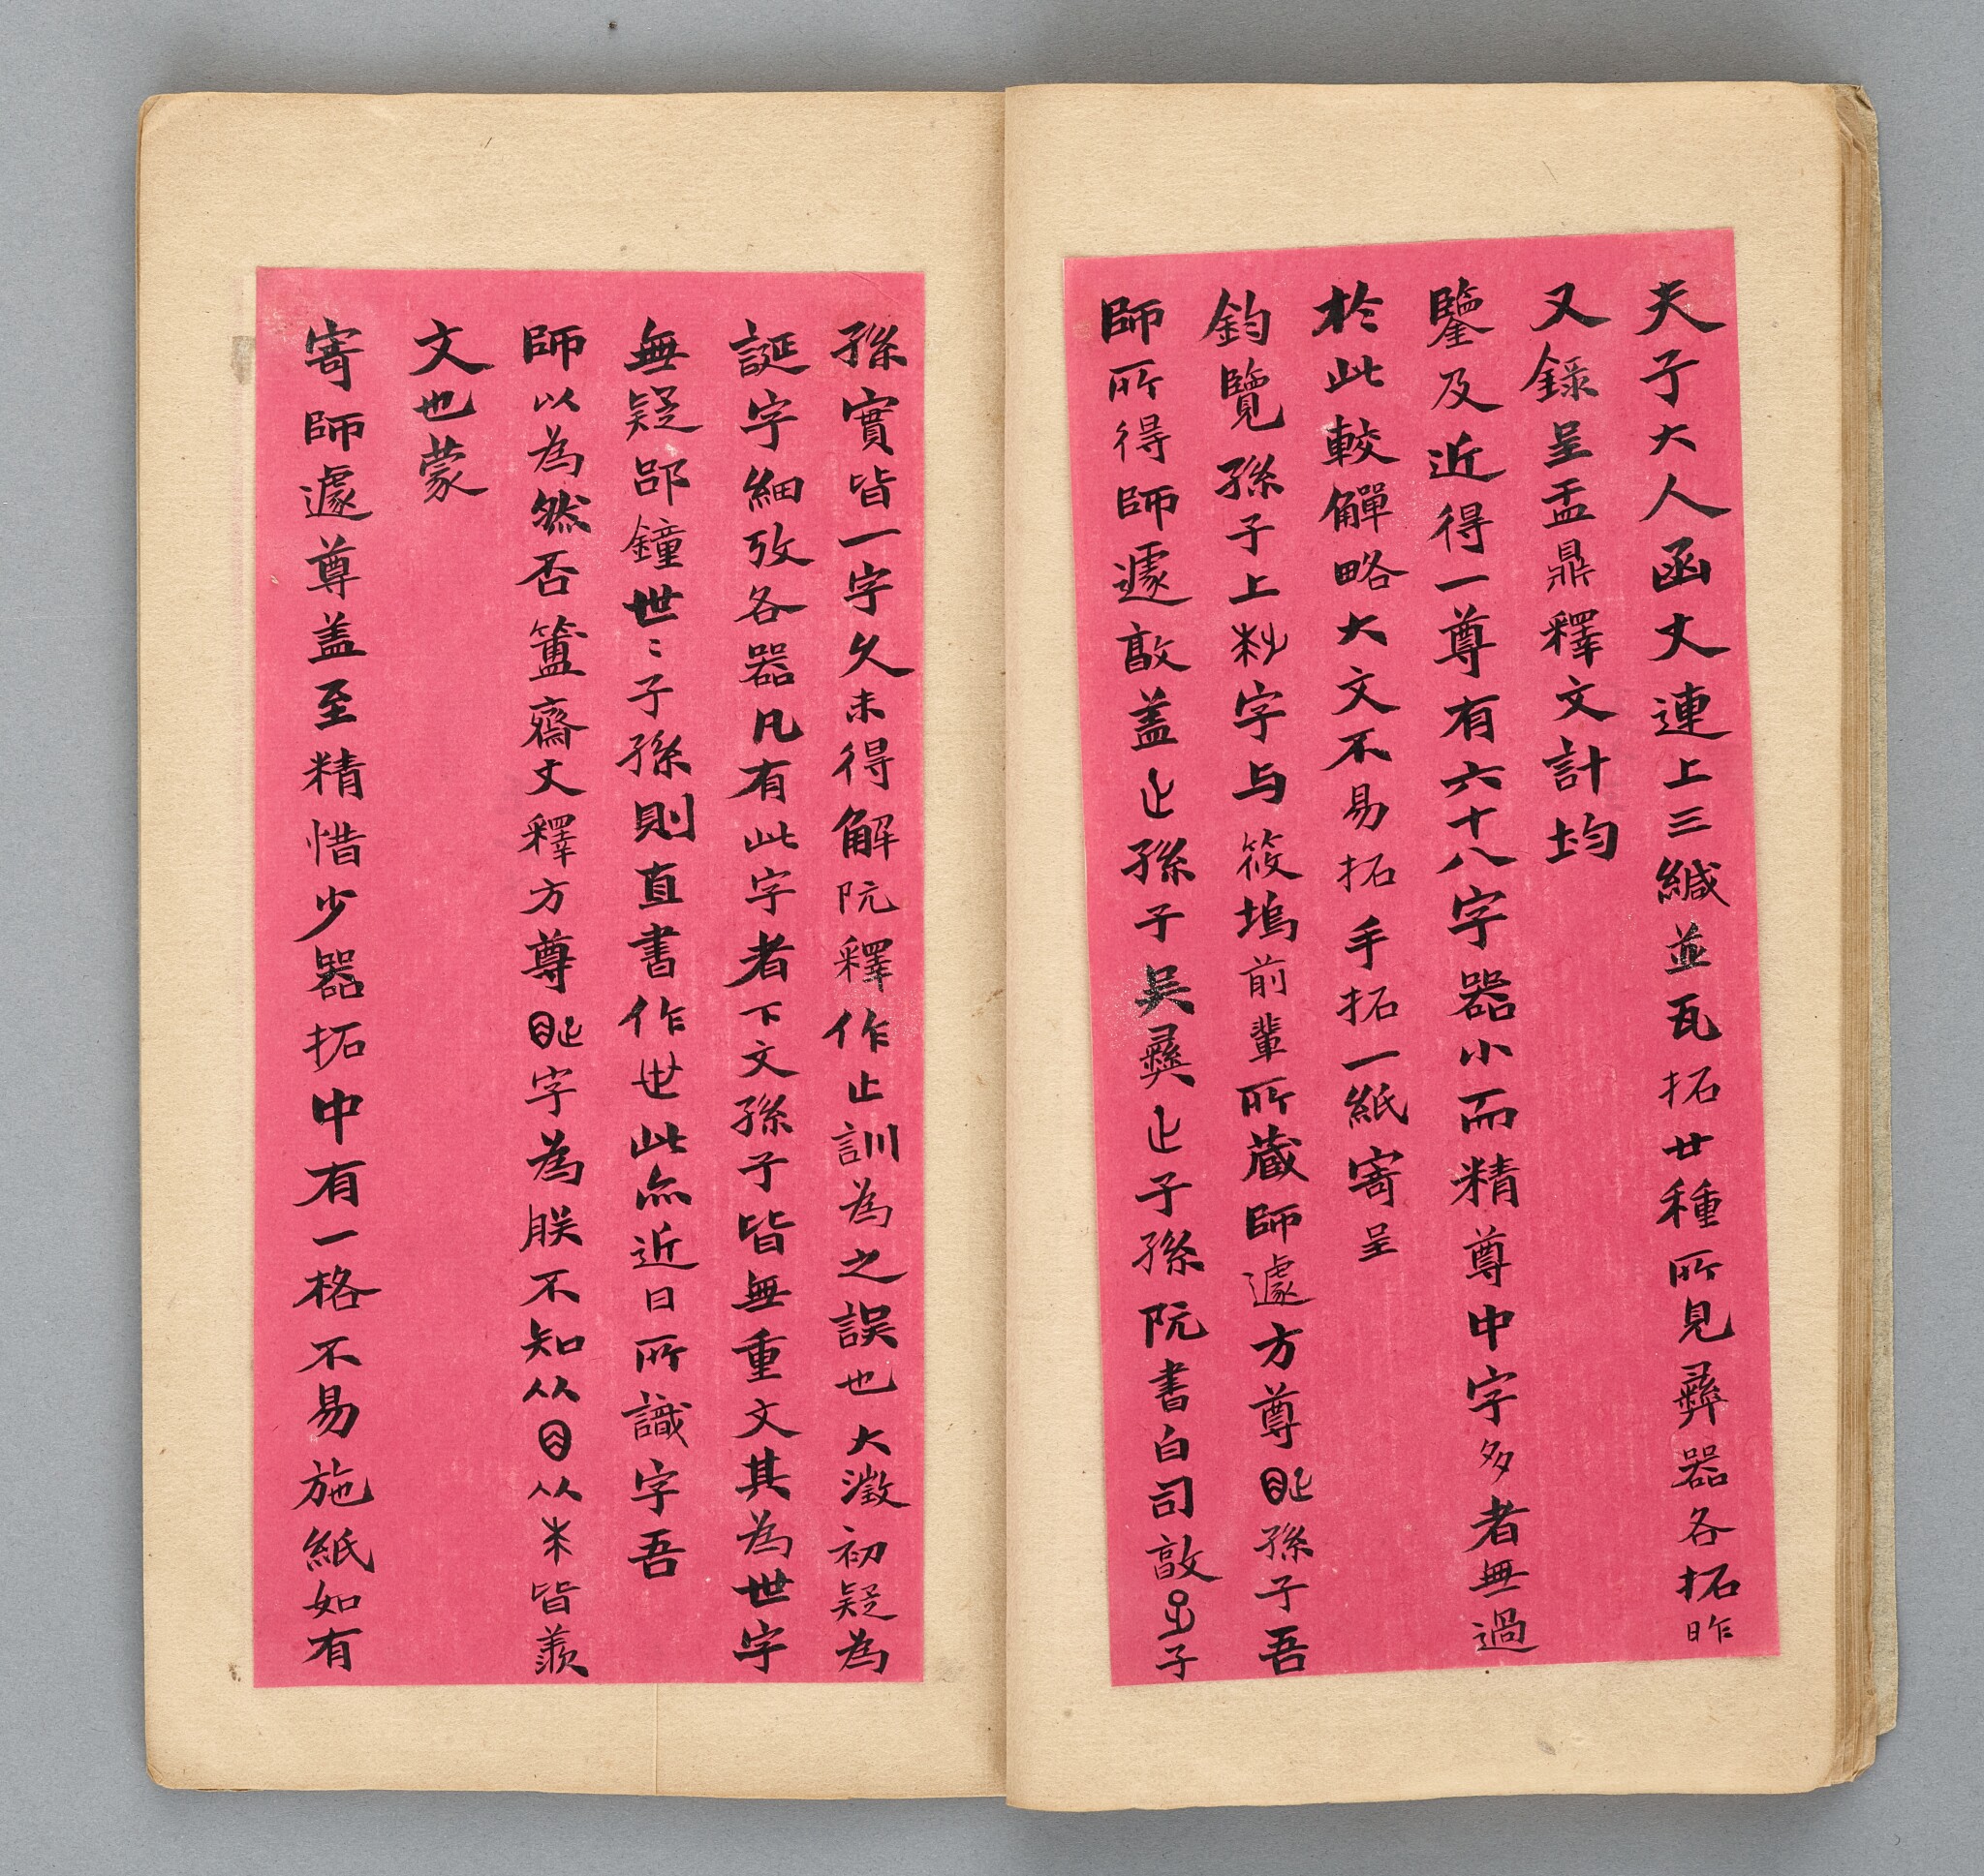 夫子大人函丈連上三緘並瓦拓廿種所見彝器各拓昨
又錄呈盂鼎釋文計均
鑒及近得一尊有六十八字器小而精尊中字多者無過
於此較觶略大文不易拓手拓一紙寄呈
鈞覽孫子上字与筱塢前輩所藏師遽方尊孫子吾
師所得師遽敦蓋孫子吳彝子孫阮書白司敦子
孫實皆一字久未得解阮釋作止訓為之誤也大澂初疑為
誕字細攷各器凡有此字者下文孫子皆無重文其為世字
無疑郘鐘世〻子孫則直書作世此亦近日所識字吾
師以為然否簠齋丈釋方尊字為朕不知从从米皆羨
文也蒙
寄師遽尊蓋至精惜少器拓中有一格不易施紙如有